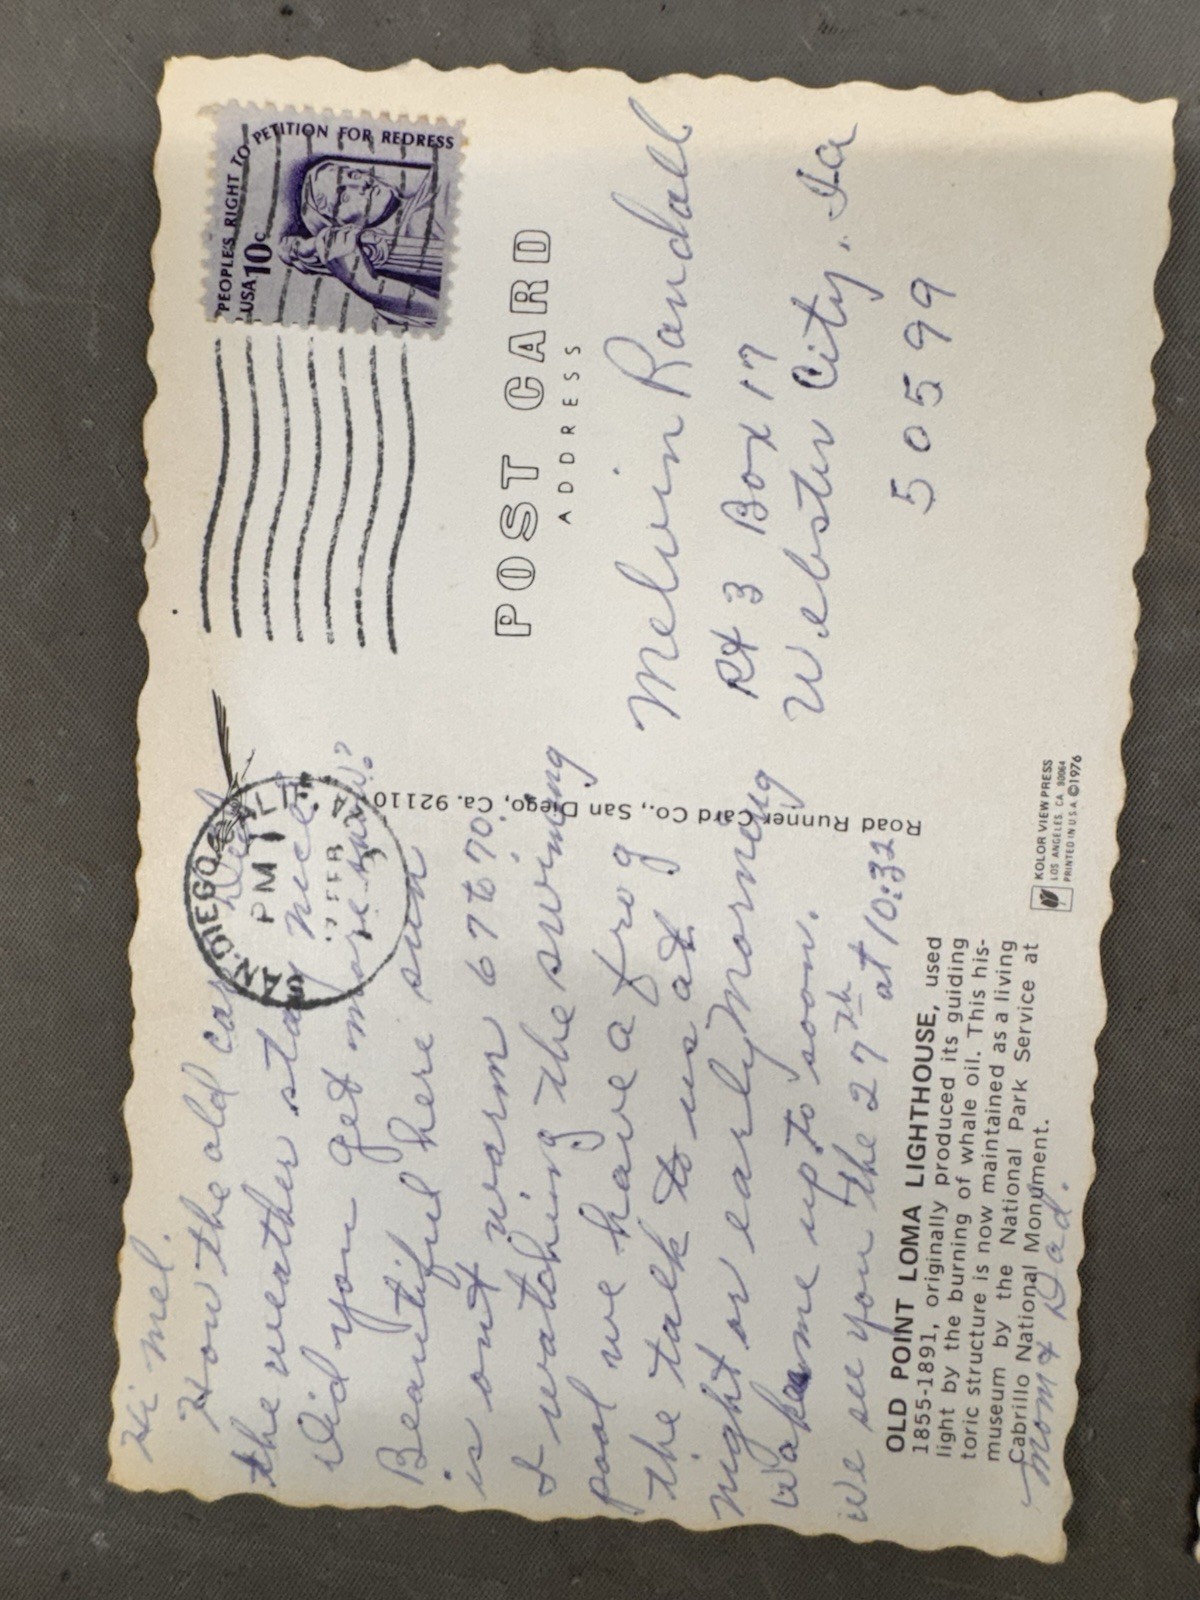 Hi Mel.
How the old car
the weather stay nice
Did you get more snow?
Beautiful here sun
is out warm 67 to 70.
I watching the swiming
pool we have a frog
the talk to us at
night or early Mornong
wakes me up to soon.
We see you the 27th at 10:32
Mom & Dad.
OLD POINT LOMA LIGHTHOUSE, used
1855-1891, originally produced its guiding
light by the burning of whale oil. This his-
toric structure is now maintained as a living
museum by the National Park Service at
Cabrillo National Monument.
KOLOR VIEW PRESS
LOS ANGELES, CA. 90064
PRINTED IN U.S.A. ©1976
Road Runner Card Co., San Diego, Ca. 92110
SAN DIEGO CALIF
PM
FEB
PEOPLE'S RIGHT TO PETITION FOR REDRESS
USA 10c
POST CARD
ADDRESS
Melvin Randall
Rt 3 Box 17
Webster City, Ia
50599